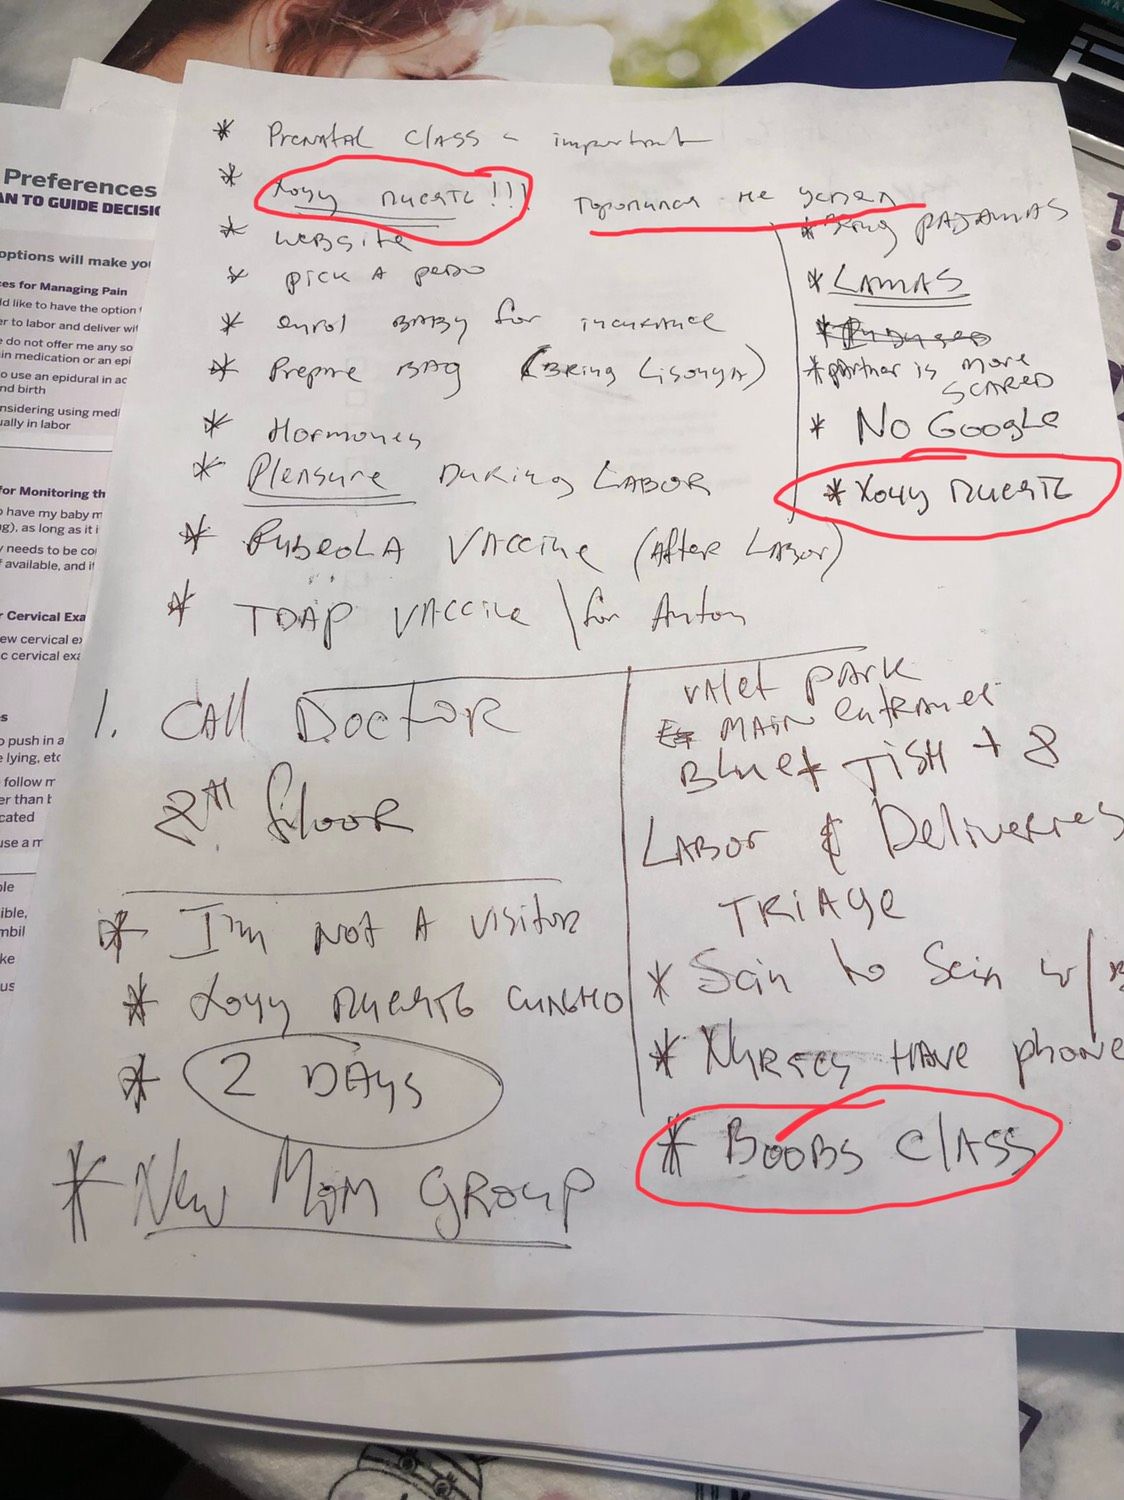 Preferences
AN TO GUIDE DECISIO
options will make you
ces for Managing Pain
ld like to have the option
er to labor and deliver wit
e do not offer me any so
in medication or an epi
o use an epidural in ac
nd birth
nsidering using medi
ually in labor
for Monitoring th
o have my baby m
g), as long as it i
y needs to be co
f available, and if
r Cervical Exa
ew cervical ex
c cervical exa
s
o push in a
e lying, etc
follow m
er than t
cated
use a m
ple
ible,
mbil
ke
us
* Prenatal class - important
* Хочу писять!!! торопился не успел
* website
* pick A pedo
* enrol BABY for incurance
* Prepare BAG (Bring Lisonya)
* Hormones
* Plensure During LABOR
* RubeolA VAccine (After LABor)
* TDAP VAccine \ for Anton
* Bring PAJAMAS
* LAMAS
* partner is more
SCARED
* No Google
* Хочу писять
1. CAll Doctor
8th floor
* I'm not A visitor
* Хочу писять сильно
* 2 DAys
* New Mom group
VAlet pArk
MAIN entrance
Blue + TiSH + 8
LABor & Deliveries
TRiAge
* Scin to Scin w/
* Nurses HAVE phone
* BooBs ClASS